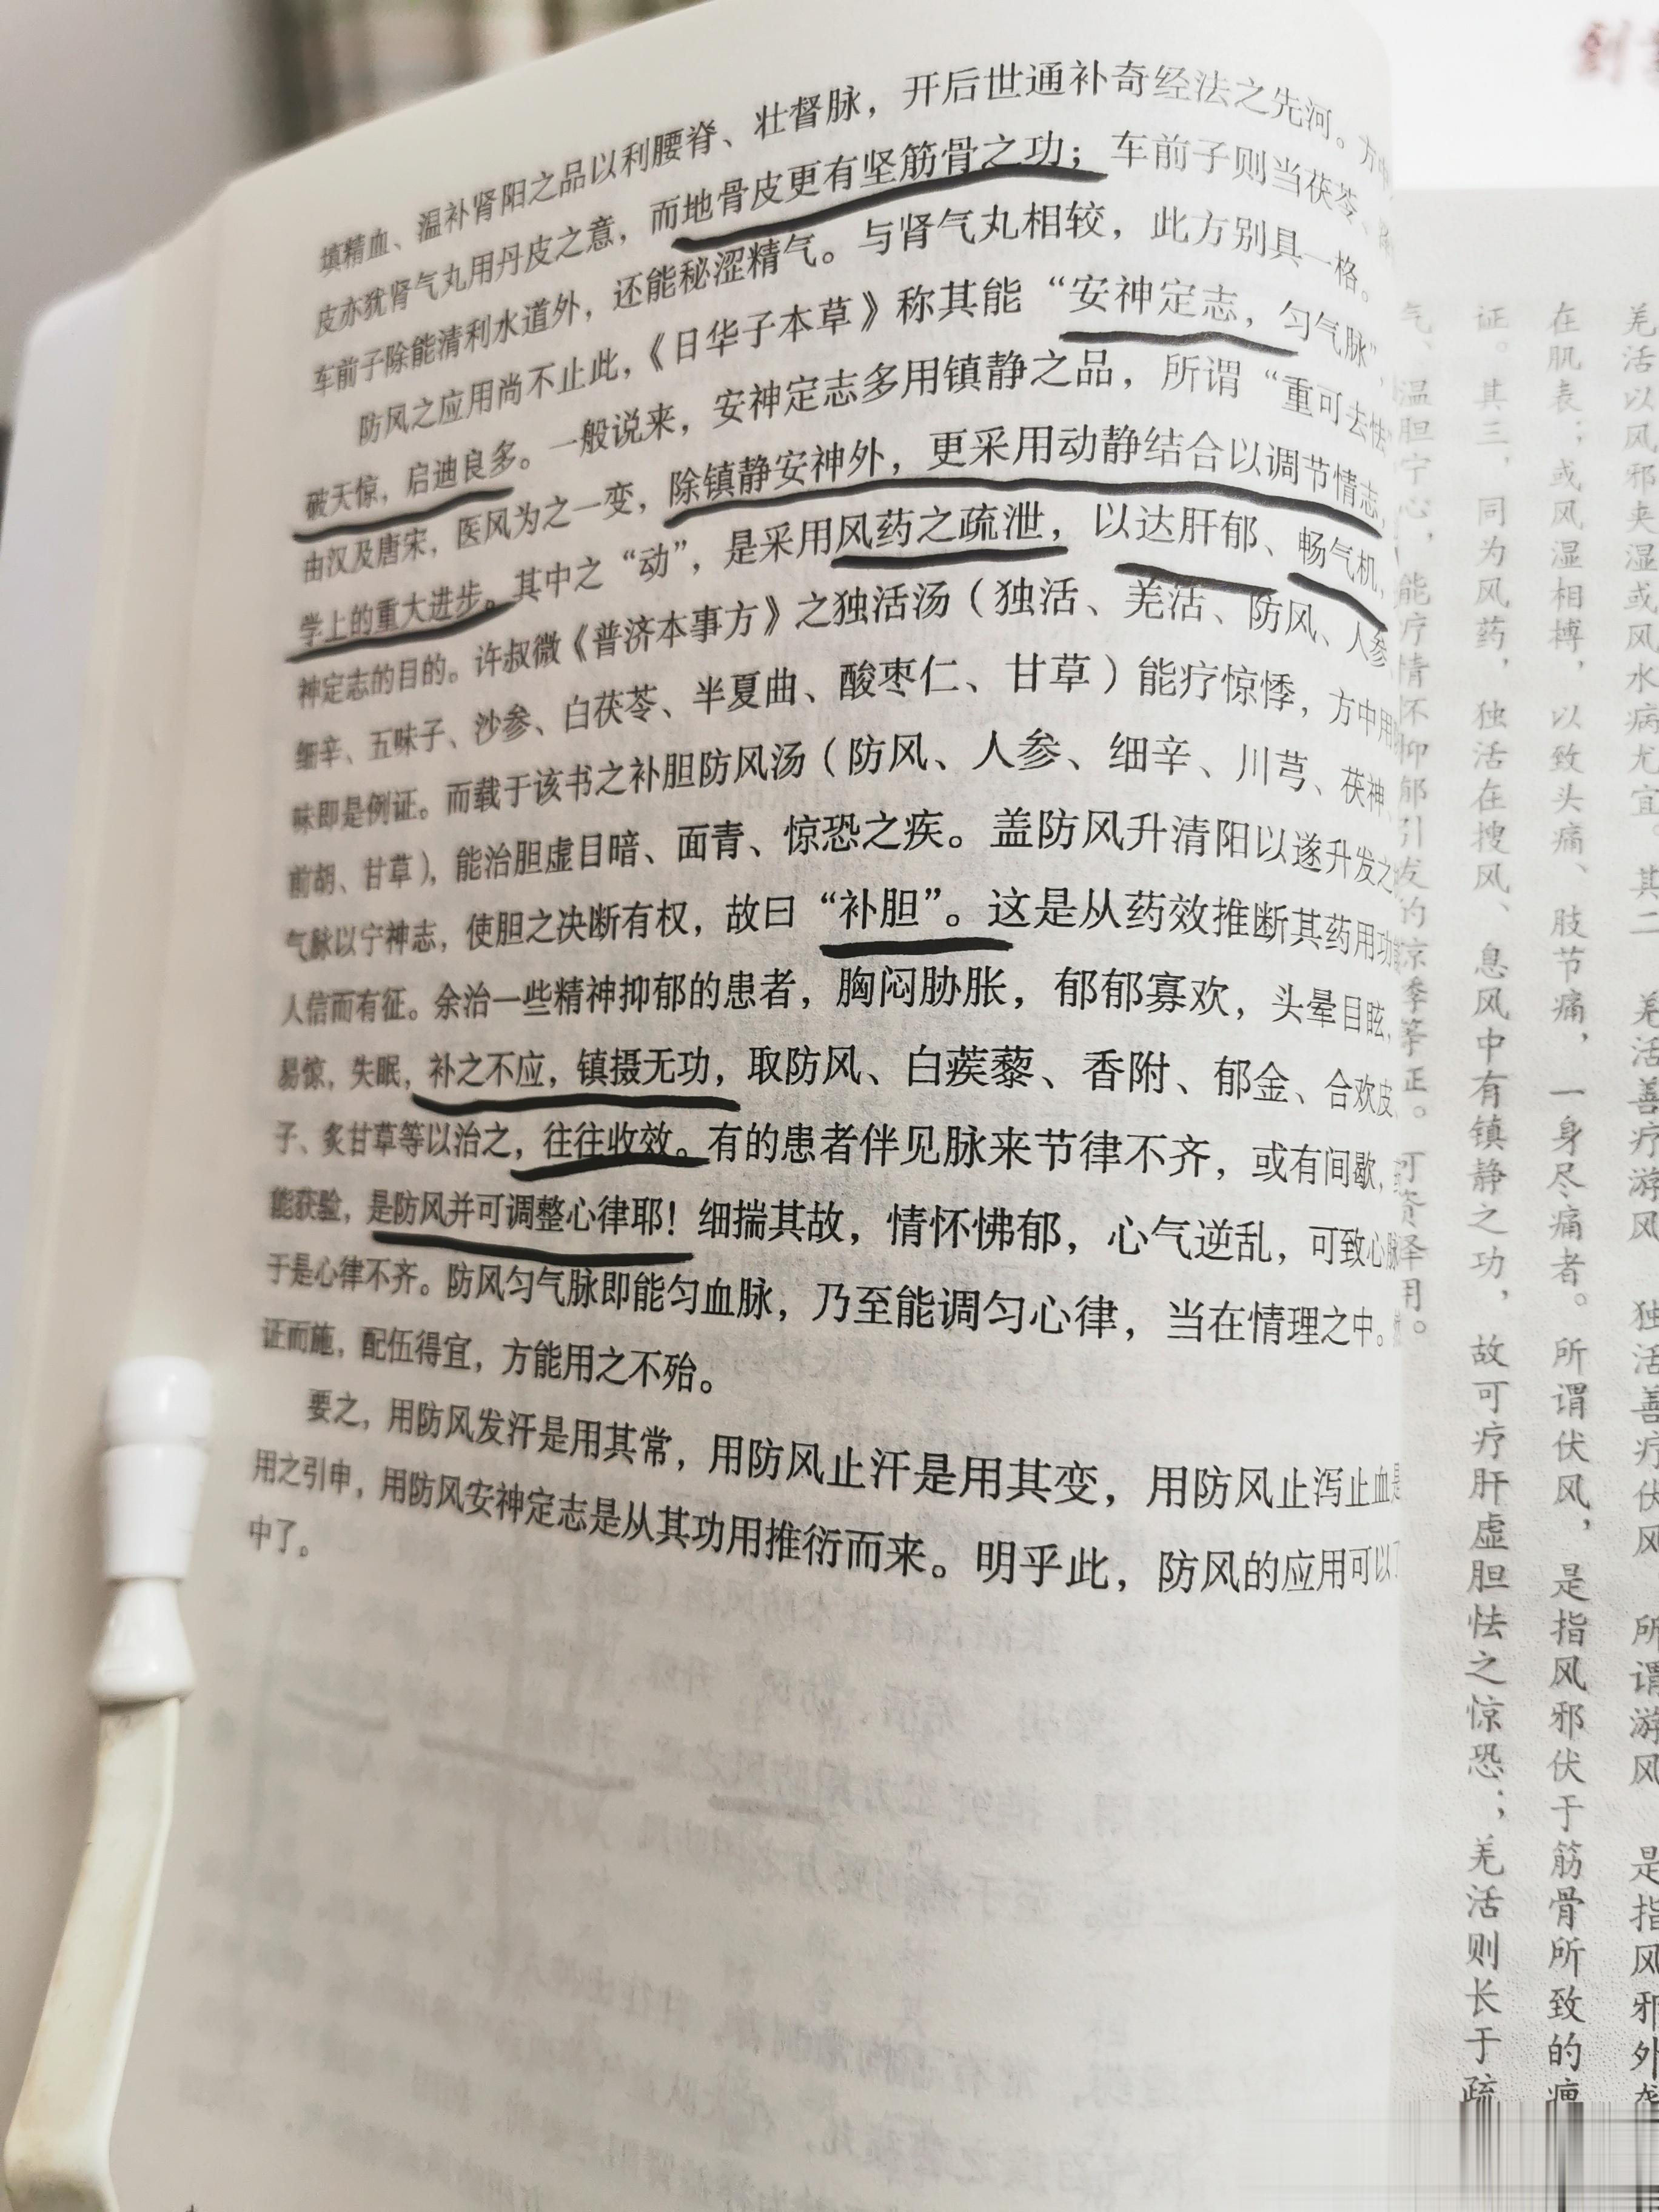 填精血、温补肾阳之品以利腰脊、壮督脉，开后世通补奇经法之先河。方
皮亦犹肾气丸用丹皮之意，而地骨皮更有坚筋骨之功；车前子则当茯苓、
车前子除能清利水道外，还能秘涩精气。与肾气丸相较，此方别具一格。
防风之应用尚不止此，《日华子本草》称其能“安神定志，匀气脉”，
破天惊，启迪良多。一般说来，安神定志多用镇静之品，所谓“重可去怯
由汉及唐宋，医风为之一变，除镇静安神外，更采用动静结合以调节情志，
学上的重大进步。其中之“动”，是采用风药之疏泄，以达肝郁、畅气机，
神定志的目的。许叔微《普济本事方》之独活汤（独活、羌活、防风、人参
细辛、五味子、沙参、白茯苓、半夏曲、酸枣仁、甘草）能疗惊悸，方中用
味即是例证。而载于该书之补胆防风汤（防风、人参、细辛、川芎、茯神、
前胡、甘草），能治胆虚目暗、面青、惊恐之疾。盖防风升清阳以遂升发之
气脉以宁神志，使胆之决断有权，故曰“补胆”。这是从药效推断其药用功
人信而有征。余治一些精神抑郁的患者，胸闷胁胀，郁郁寡欢，头晕目眩，
易惊，失眠，补之不应，镇摄无功，取防风、白蒺藜、香附、郁金、合欢皮
子、炙甘草等以治之，往往收效。有的患者伴见脉来节律不齐，或有间歇，
能获验，是防风并可调整心律耶！细揣其故，情怀怫郁，心气逆乱，可致心脉
于是心律不齐。防风匀气脉即能匀血脉，乃至能调匀心律，当在情理之中。
证而施，配伍得宜，方能用之不殆。
要之，用防风发汗是用其常，用防风止汗是用其变，用防风止泻止血是
用之引申，用防风安神定志是从其功用推衍而来。明乎此，防风的应用可以
中了。
羌活以风邪夹湿或风水病尤宜。其二，羌活善疗游风，独活善疗伏风。所谓游风，是指风邪外
在肌表；或风湿相搏，以致头痛、肢节痛，一身尽痛者。所谓伏风，是指风邪伏于筋骨所致的痹
证。其三，同为风药，独活在搜风、息风中有镇静之功，故可疗肝虚胆怯之惊恐；羌活则长于疏
气、温胆宁心，能疗情怀抑郁引发的惊悸等证。可资择用。